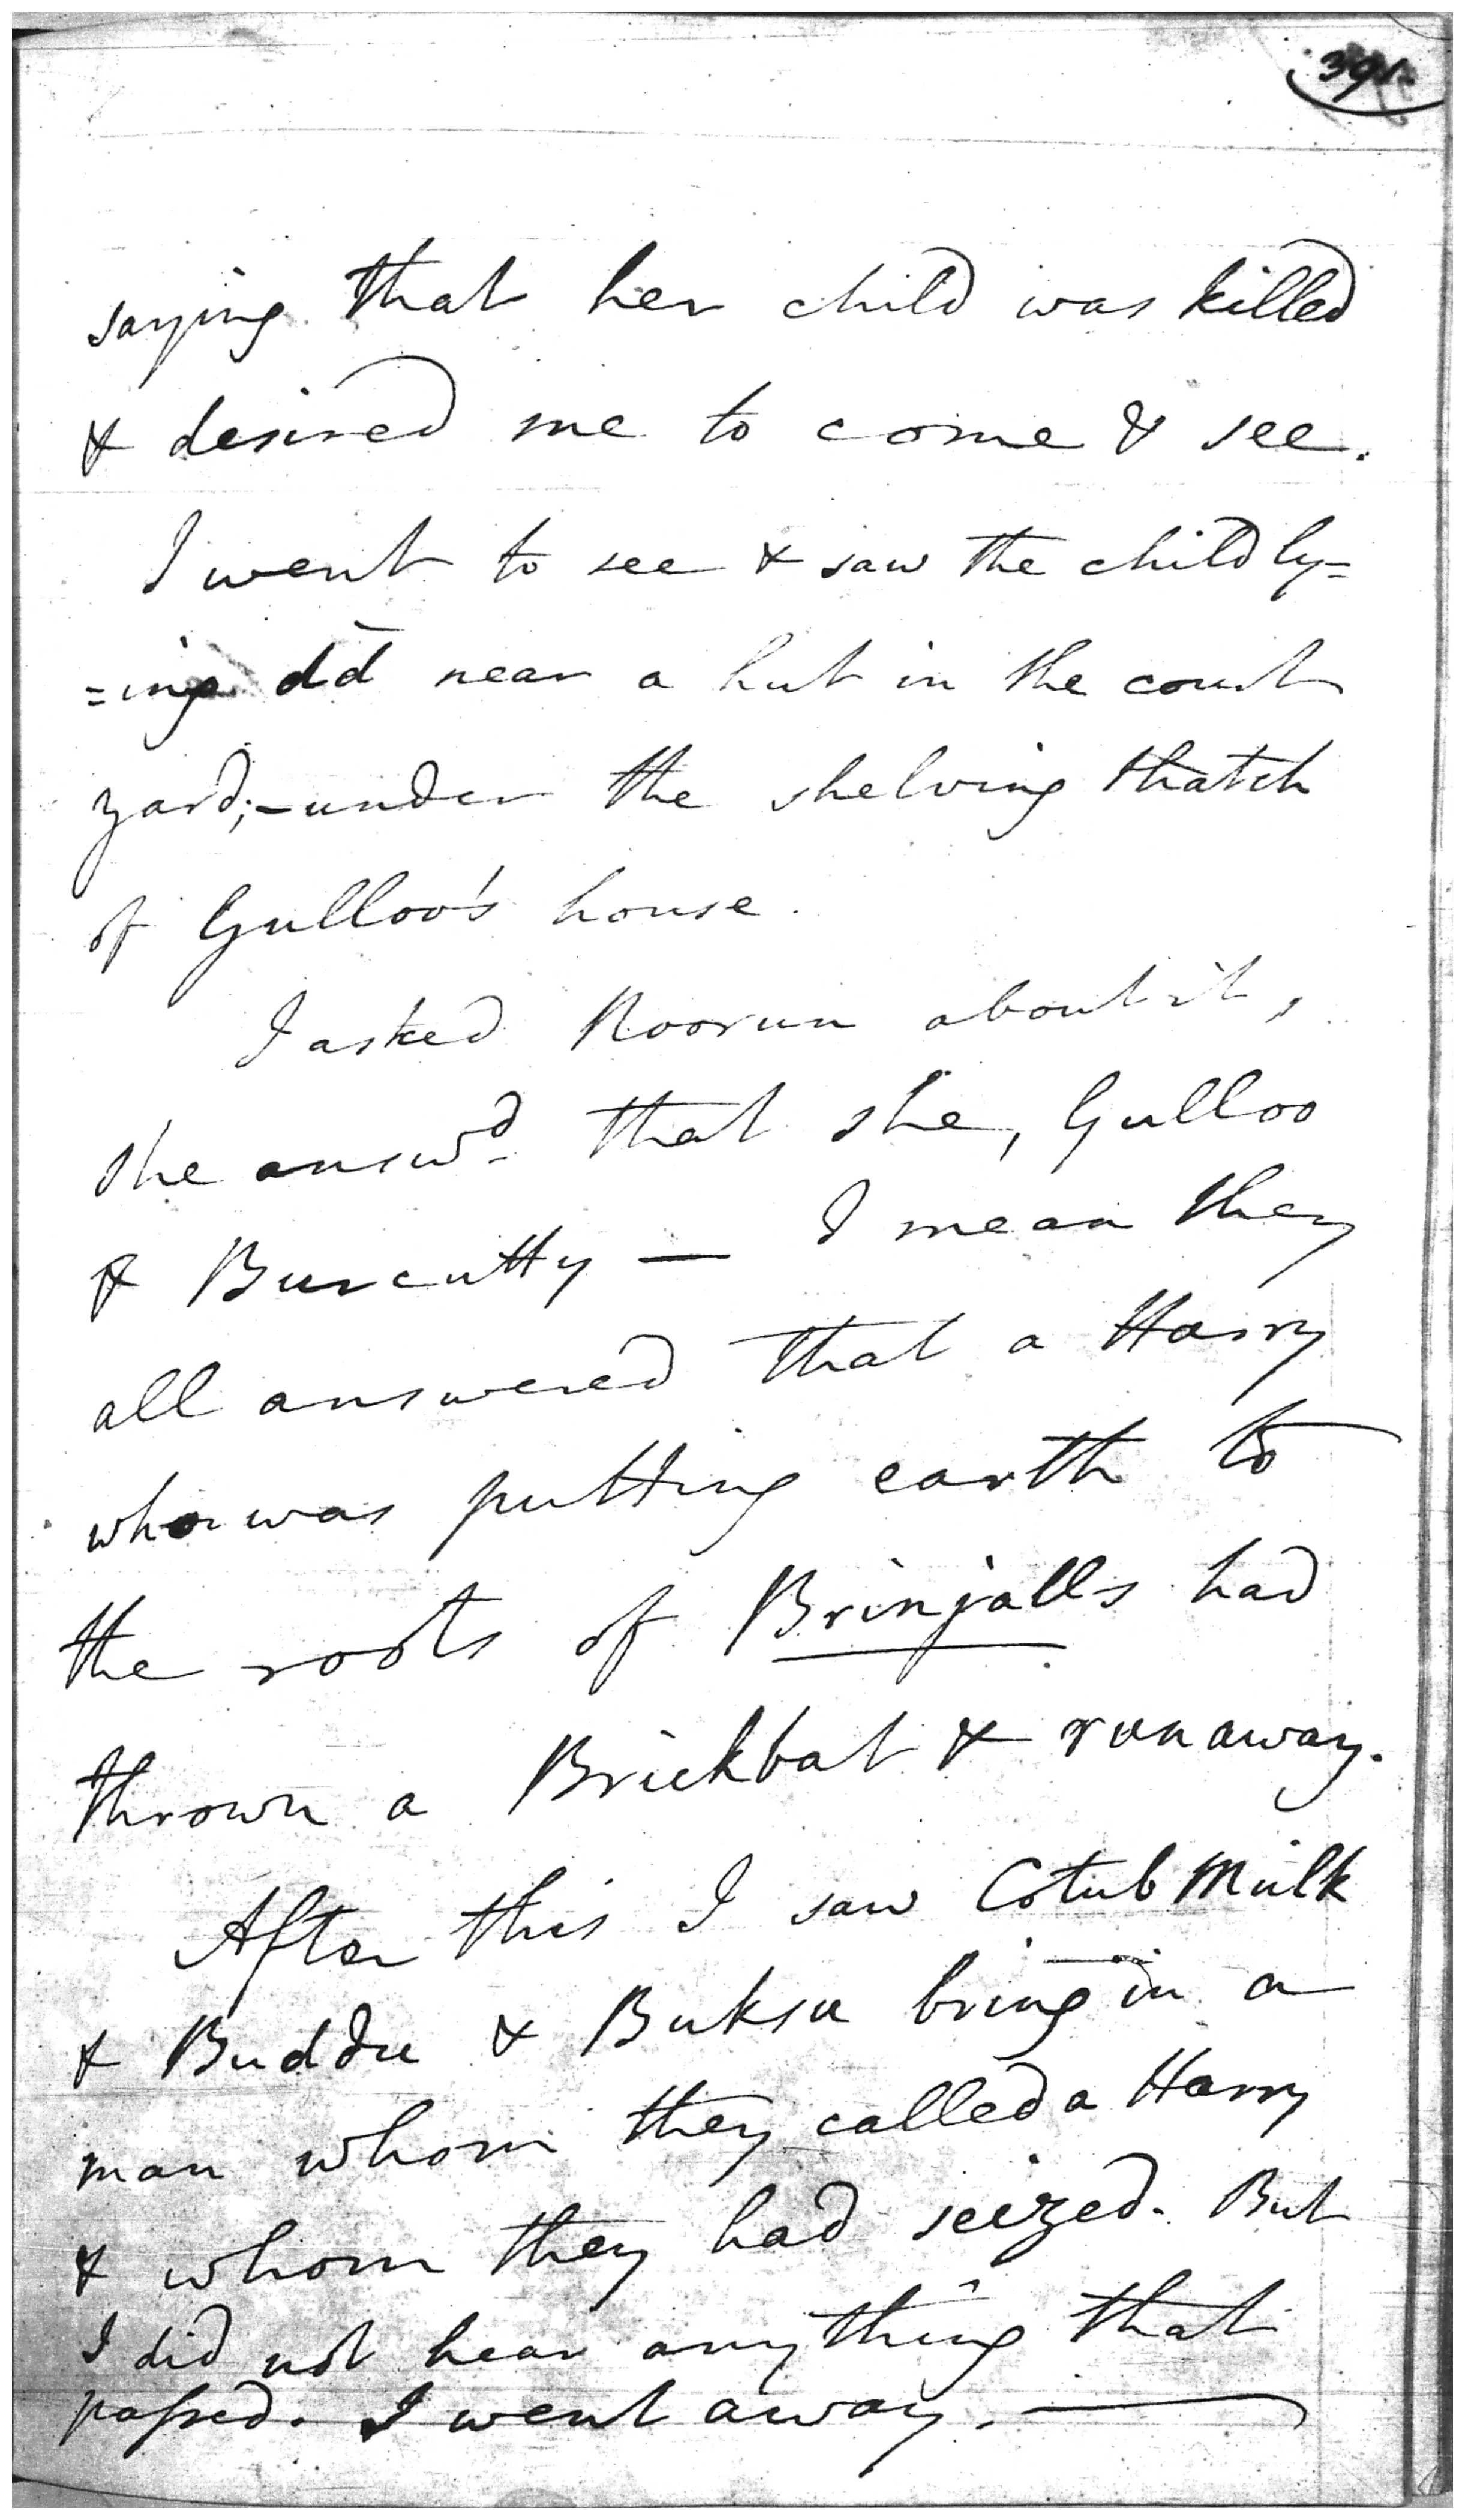 391
saying that her child was killed
& desired me to come & see.
I went to see & saw the child ly=
=ing dd near a hut in the court
yard;- under the shelving thatch
of Gulloo's house.
I asked Noorun about it,
she answd that she, Gulloo
& Burcutty — I mean they
all answered that a Harry
who was putting earth to
the roots of Brinjalls had
thrown a Brickbat & run away.
After this I saw Cotub Mulk
& Buddu & Buksu bring in a
man whom they called a Harry
& whom they had seized. But
I did not hear any thing that
passed. I went away. —